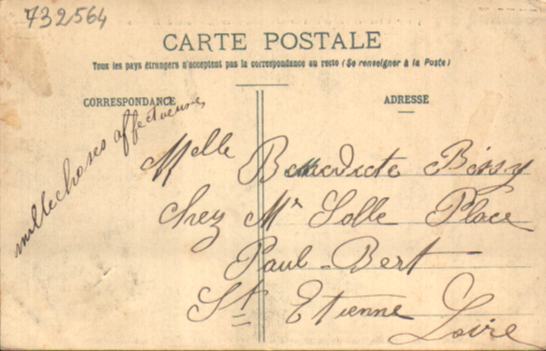 732564
CARTE POSTALE
Tous les pays étrangers n'acceptent pas la correspondance au recto (Se renseigner à la Poste)
CORRESPONDANCE
ADRESSE
mille choses affectueuses
Melle Benedicte Bissy
chez Mr Solle Place
Paul-Bert
St Etienne
Loire